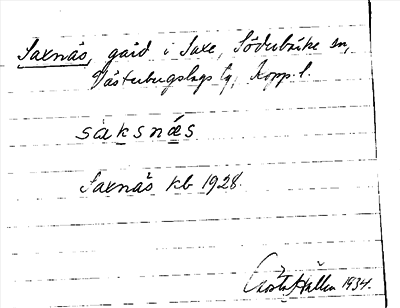 Saxnäs, gård i Saxe, Söderbärke sn,
Västerbergslags tg, Kopp. l.
saksnäs
Saxnäs kb 1928.
Gösta Hallén 1934.